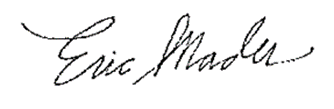 Eric Mader